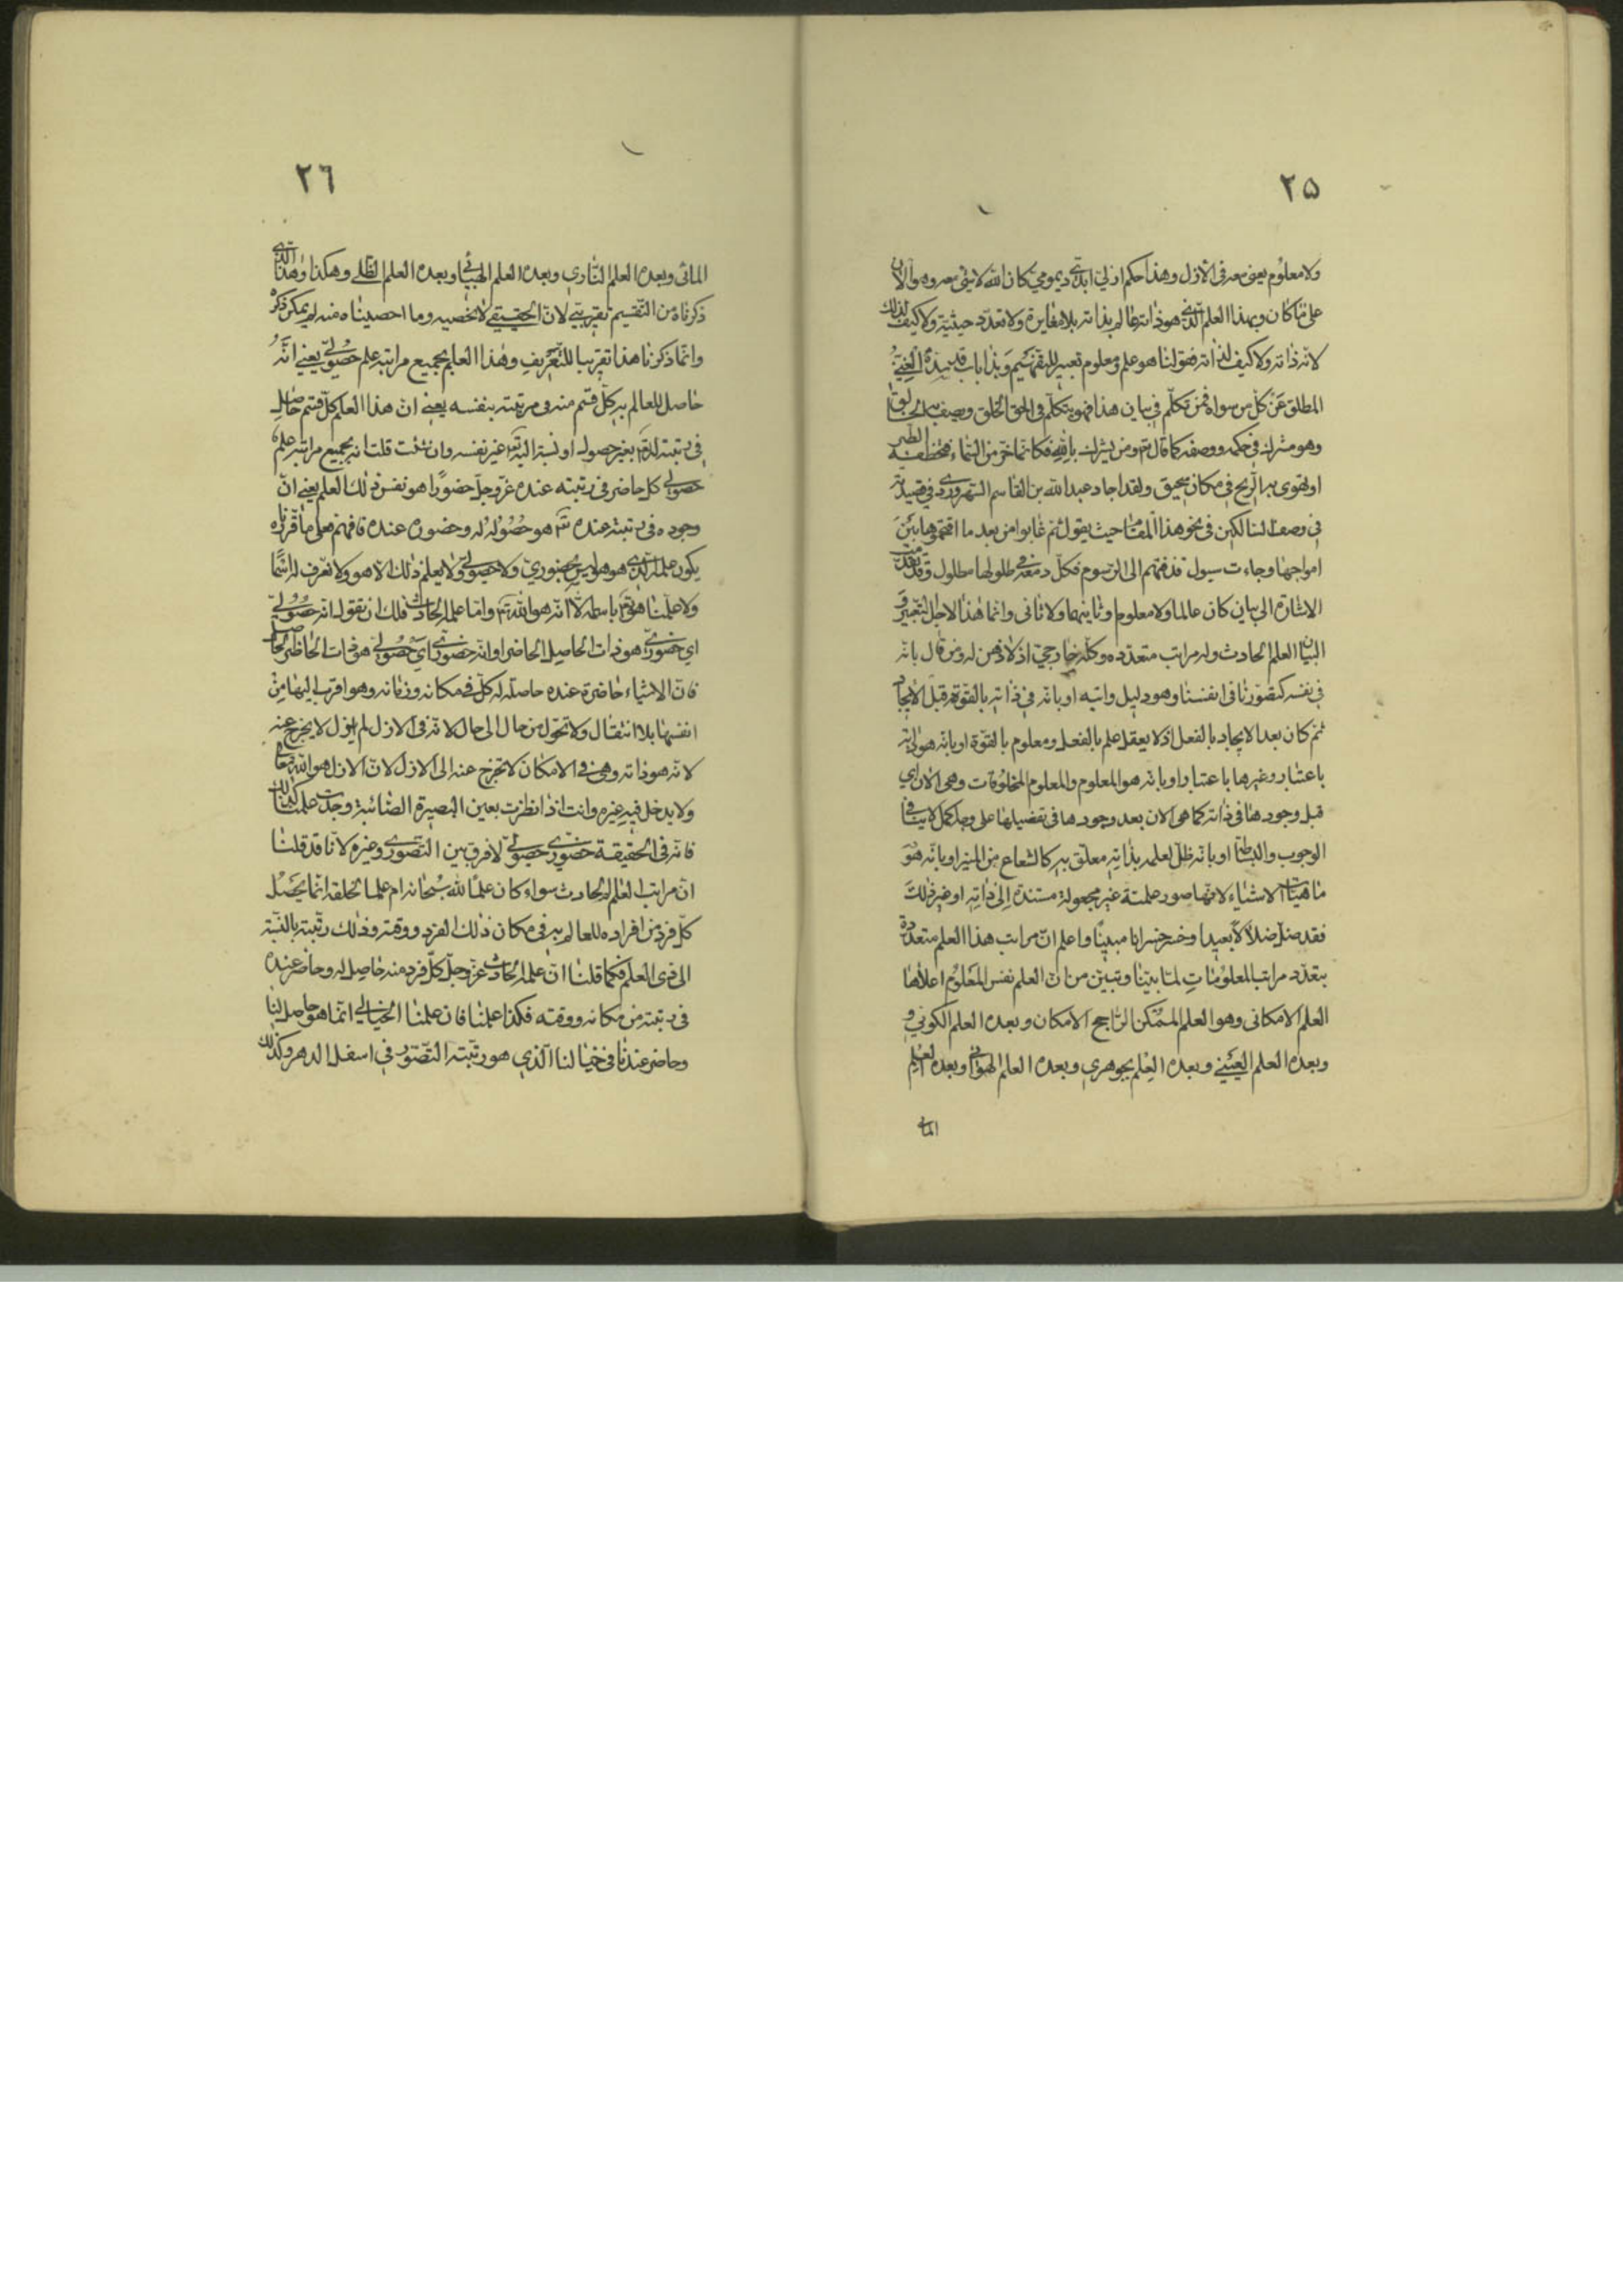 ٢٥
ولا معلوم يعني معه في الازل وهذا حكم ازلي ابدي ديمومي كان الله لا شئ معه وهو الان
على ما كان وبهذا العلم الذي هو ذاته عالم بذاته بلا مغايرة ولا تعدد حيثية ولا كيف لذلك
لانه ذاته ولا كيف لذاته فقولنا هو علم ومعلوم تعبير للتفهيم وبذا باب قد سدّه الغني
المطلق عن كل من سواه فمن تكلم في بيان هذا فهو يتكلم في الحق الخلق ويصف به الخالق
وهو مشرك في حكمه ووصفه كما قال تم ومن يشرك بالله فكانما خر من السماء فتخطفه الطير
او تهوي به الريح في مكان سحيق ولقد اجاد عبد الله بن القاسم السهروردي في قصيدته
في وصف السالكين في نحو هذا المقام حيث يقول ثم غابوا من بعد ما اقتحموها بين
امواجها وجاءت سيول قذفتهم الى الرسوم فكل دمعه في طلولها مطلول وقد تقدمت
الاشارة الى بيان كان عالما ولا معلوم وثانيهما ولا ثاني وانما هذا لاجل التعبير و
البيان العلم الحادث وله مراتب متعدده وكله خارجي اذ لا ذهن له ومن قال بانه
في نفسه كتصورنا في انفسنا وهو دليل واتيه او بانه في ذاته بالقوة قبل الايجاد
ثم كان بعد الايجاد بالفعل اذ لا يعقل علم بالفعل ومعلوم بالقوة او بانه هو ذاته
باعتبار وغيرها باعتبار او بانه هو المعلوم والمعلوم المخلوقات وهي الان اي
قبل وجودها في ذاته كما هي الان بعد وجودها في تفصيلها على وجه كمل لا ينافي
الوجوب والبساطة او بانه ظل لعلمه بذاته معلق به كالشعاع من المنير او بانه هو
ماهيات الاشياء لانها صور علمية غير مجعولة مستندة الى ذاته او غير ذلك
فقد ضل ضلالا بعيدا وخسر خسرانا مبينا واعلم ان مراتب هذا العلم متعددة
بتعدد مراتب المعلومات لما بينا وتبين من ان العلم نفس المعلوم اعلاها
العلم الامكاني وهو العلم الممكن الراجح الامكان وبعده العلم الكوني و
وبعده العلم العيني وبعده العلم بجوهري وبعده العلم الهوائي وبعده العلم
المائي
٢٦
المائي وبعده العلم الناري وبعده العلم الهبائي وبعده العلم الظلي وهكذا وهذا الذي
ذكرناه من التقسيم تقريبي لان الحقيقي لا نحصيه وما احصيناه منه لم يمكن ذكره
وانما ذكرنا هذا تقريبا للتعريف وهذا العلم بجميع مراتبه علم حصولي يعني انه
حاصل للعالم به كل قسم منه في مرتبته بنفسه يعني ان هذا العلم كل قسم حاصل
في رتبته له تم بغير حصول او نسبة اليه تم غير نفسه وان شئت قلت انه بجميع مراتبه علم
حصولي كل حاضر في رتبته عنده عز وجل حضورا هو نفس ذلك العلم يعني ان
وجوده في رتبته عنده تم هو حصوله له وحضوره عنده فافهم فعلى ما قررناه
يكون علمه الذي هو هو ليس بحضوري ولا حصولي ولا يعلم ذلك الا هو ولا نعرف له اسما
ولا علمنا هو تم باسمه لا انه هو الله تم واما علمه الحادث فلك ان تقول انه حصولي
اي حضوري هو ذات الحاصل الحاضر او انه حضوري اي حصولي هو ذات الحاضر الحاصل
فان الاشياء حاضرة عنده حاصلة له كل في مكانه وزمانه وهو اقرب اليها من
انفسها بلا انتقال ولا تحول من حال الى حال لانه في الازل لم يزل لا يخرج عنه
لانه هو ذاته وهي في الامكان لا تخرج عنه الى الازل لان الازل هو الله تعالى
ولا يدخل فيه غيره وانت اذا نظرت بعين البصيرة الصائبة وجدت علمنا كذلك
فانه في الحقيقة حضوري حصولي لا فرق بين التصوري وغيره لانا قد قلنا
ان مراتب العلم الحادث سواء كان علما لله سبحانه ام علما لخلقه انما يحصل
كل فرد من افراده للعالم به في مكان ذلك الفرد ووقته وذلك رتبته بالنسبة
الى ذي العلم فكما قلنا ان علمه الحادث عز وجل كل فرد منه حاصل له وحاضر عنده
في رتبته من مكانه ووقته فكذا علمنا فان علمنا الخيالي انما هو حاصل لنا
وحاضر عندنا في خيالنا الذي هو رتبته التصور في اسفل الدهر وكذلك